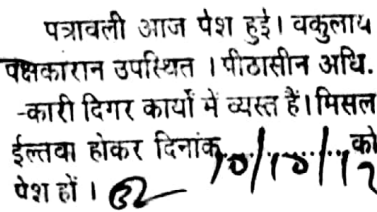 पत्रावली आज पेश हुई। वकुलाय
पक्षकारान उपस्थित । पीठासीन अधि.
-कारी दिगर कार्यो में व्यस्त हैं। मिसल
ईल्तवा होकर दिनांक 10/10/12 को
पेश हों ।